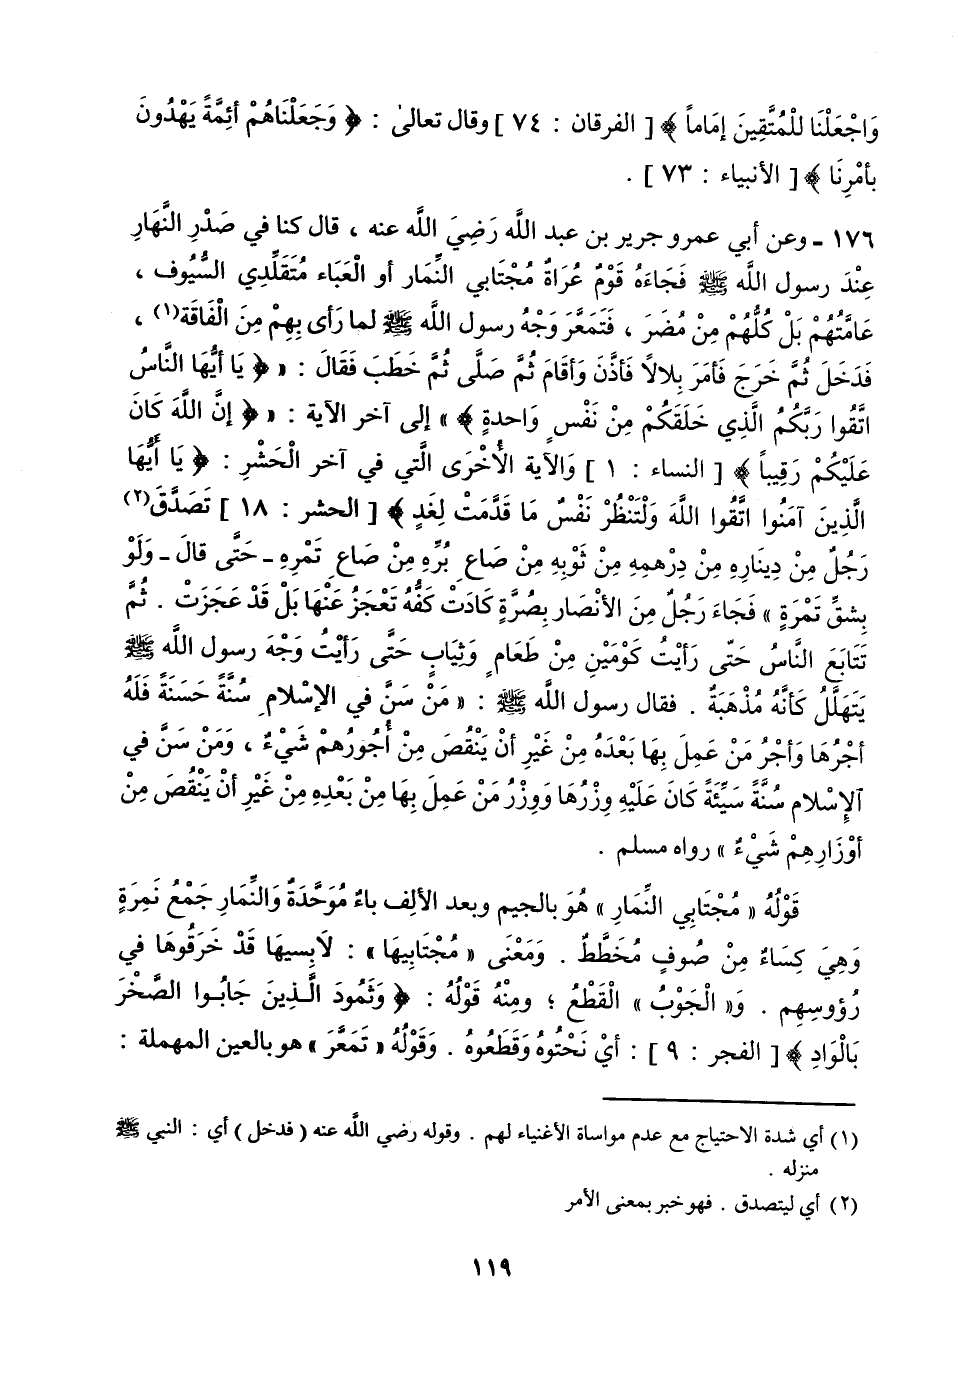 وَاجْعَلْنَا لِلْمُتَّقِينَ إمَاماً ﴾ [ الفرقان : ٧٤ ] وقال تعالىٰ : ﴿ وَجَعَلْنَاهُمْ أَئِمَّةً يَهْدُونَ
بأَمْرِنَا ﴾ [ الأنبياء : ٧٣ ] .
١٧٦ ـ وعن أبي عمرو جرير بن عبد اللَّه رَضِيَ اللَّه عنه ، قال كنا في صَدْرِ النَّهَارِ
عِنْدَ رسول اللَّه ﷺ فَجَاءَهُ قَوْمٌ عُرَاةٌ مُجْتَابي النِّمَار أو الْعَبَاء مُتَقَلِّدِي السُّيُوف ،
عَامَّتُهُمْ بَلْ كُلُّهُمْ مِنْ مُضَرَ ، فَتَمَعَّرَ وَجْهُ رسول اللَّه ﷺ لما رَأى بِهِمْ مِنَ الْفَاقَة(١) ،
فَدَخَلَ ثُمَّ خَرَجَ فَأمَرَ بِلالاً فَأذَّنَ وَأقَامَ ثُمَّ صَلَّى ثُمَّ خَطَبَ فَقَالَ : « ﴿ يَا أيُّهَا النَّاسُ
اتَّقُوا رَبَّكُمُ الَّذِي خَلَقَكُمْ مِنْ نَفْسٍ وَاحدةٍ ﴾ » إلى آخر الآية : « ﴿ إنَّ اللَّهَ كَانَ
عَلَيْكُمْ رَقِيباً ﴾ [ النساء : ١ ] وَالآية الأُخْرَى الَّتي في آخر الْحَشْرِ : ﴿ يَا أَيُّهَا
الَّذِينَ آمَنُوا اتَّقُوا اللَّهَ وَلْتَنْظُرْ نَفْسٌ مَا قَدَّمَتْ لِغَدٍ ﴾ [ الحشر : ١٨ ] تَصَدَّقَ(٢)
رَجُلٌ مِنْ دِينَارِهِ مِنْ دِرْهمِهِ مِنْ ثَوْبِهِ مِنْ صَاعِ بُرِّهِ مِنْ صَاعِ تَمْرِهِ ـ حَتَّى قالَ ـ وَلَوْ
بِشقِّ تَمْرَةٍ » فَجَاءَ رَجُلٌ مِنَ الأنْصَار بِصُرَّةٍ كَادَتْ كَفُّهُ تَعْجَزُ عَنْهَا بَلْ قَدْ عَجَزَتْ . ثُمَّ
تَتَابَعَ النَّاسُ حَتّى رَأيْتُ كَوْمَيْنِ مِنْ طَعَامٍ وَثِيَابٍ حَتَّى رَأيْتُ وَجْهَ رسول اللَّه ﷺ
يَتَهَلَّلُ كَأنَّهُ مُذْهَبَةٌ . فقال رسول اللَّه ﷺ : « مَنْ سَنَّ في الإسْلامِ سُنَّةً حَسَنَةً فَلَهُ
أجْرُهَا وَأجْرُ مَنْ عَمِلَ بِهَا بَعْدَهُ مِنْ غَيرِ أنْ يَنْقُصَ مِنْ أُجُورِهُمْ شَيْءٌ ، وَمَنْ سَنَّ في
اَلإِسْلام سُنَّةً سَيِّئَةً كَانَ عَلَيْهِ وِزْرُهَا وَوِزْرُ مَنْ عَمِلَ بِهَا مِنْ بَعْدِهِ مِنْ غَيْرِ أنْ يَنْقُصَ مِنْ
أوْزَارِهِمْ شَيْءٌ » رواه مسلم .
قَوْلُهُ « مُجْتَابِي النِّمَارِ » هُوَ بالجيم وبعد الألِف باءٌ مُوَحَّدَةٌ وَالنِّمَارِ جَمْعُ نَمِرَةٍ
وَهِيَ كِسَاءٌ مِنْ صُوفٍ مُخَطَّطٌ . وَمَعْنَى « مُجْتَابِيهَا » : لاَبِسيهَا قَدْ خَرَقُوهَا في
رُؤوسِهِم . وَ« الْجَوْبُ » الْقَطْعُ ؛ ومِنْهُ قَوْلُهُ : ﴿ وَثَمُودَ الَّـذِينَ جَابُـوا الصَّخْرَ
بَالْوَادِ ﴾ [ الفجر : ٩ ] : أيْ نَحْتُوهُ وَقَطَعُوهُ . وَقَوْلُهُ « تَمَعَّرَ » هو بالعين المهملة :
(١) أي شدة الاحتياج مع عدم مواساة الأغنياء لهم . وقوله رضي اللَّه عنه ( فدخل ) أي : النبي ﷺ
منزله .
(٢) أي ليتصدق . فهو خبر بمعنى الأمر
١١٩